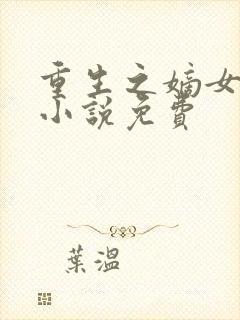 重生之嫡女
小說免費
葉溫